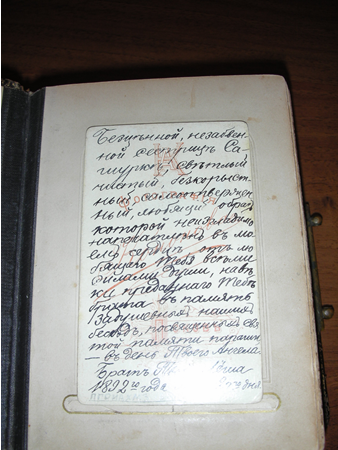 Безцѣнной, незабвен
ной сестрицѣ Са
шуркѣ свѣтлый
чистый, безкорыст
ный, самоотвержен
ный, любящій образъ
которой неизгладимо
напечатлѣнъ въ мо
емъ сердцѣ отъ лю
бящаго Тебя всѣми
силами души, навѣ
ки преданнаго Тебѣ
брата въ память
Задушевныхъ нашихъ
бесѣдъ, посвященныхъ свя
той памяти
въ день Твоего Ангела
Братъ Твой
1892го года дня